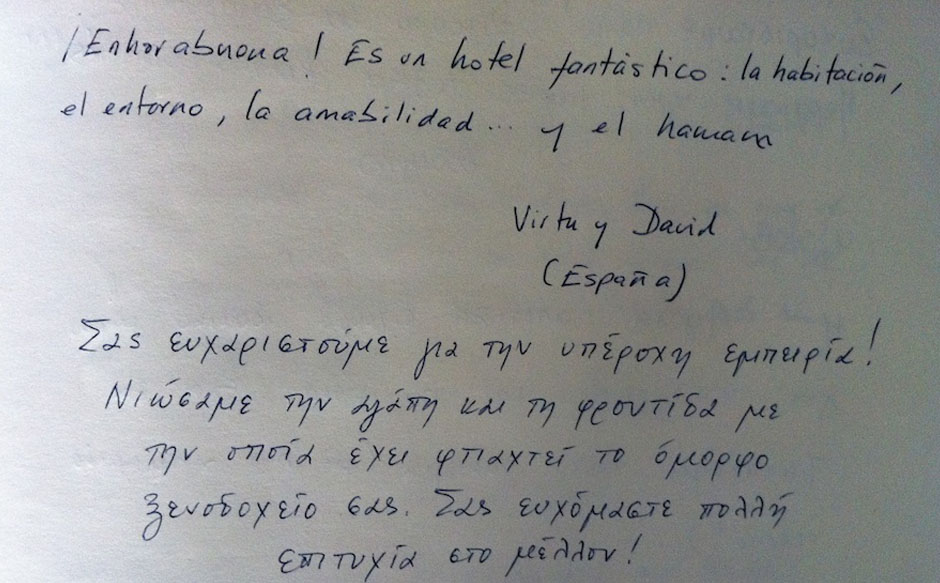 ¡Enhorabuena! Es un hotel fantástico: la habitación,
el entorno, la amabilidad... y el hamam
Virtu y David
(España)
Σας ευχαριστούμε για την υπέροχη εμπειρία!
Νιώσαμε την αγάπη και τη φροντίδα με
την οποία έχει φτιαχτεί το όμορφο
ξενοδοχείο σας. Σας ευχόμαστε πολλή
επιτυχία στο μέλλον!